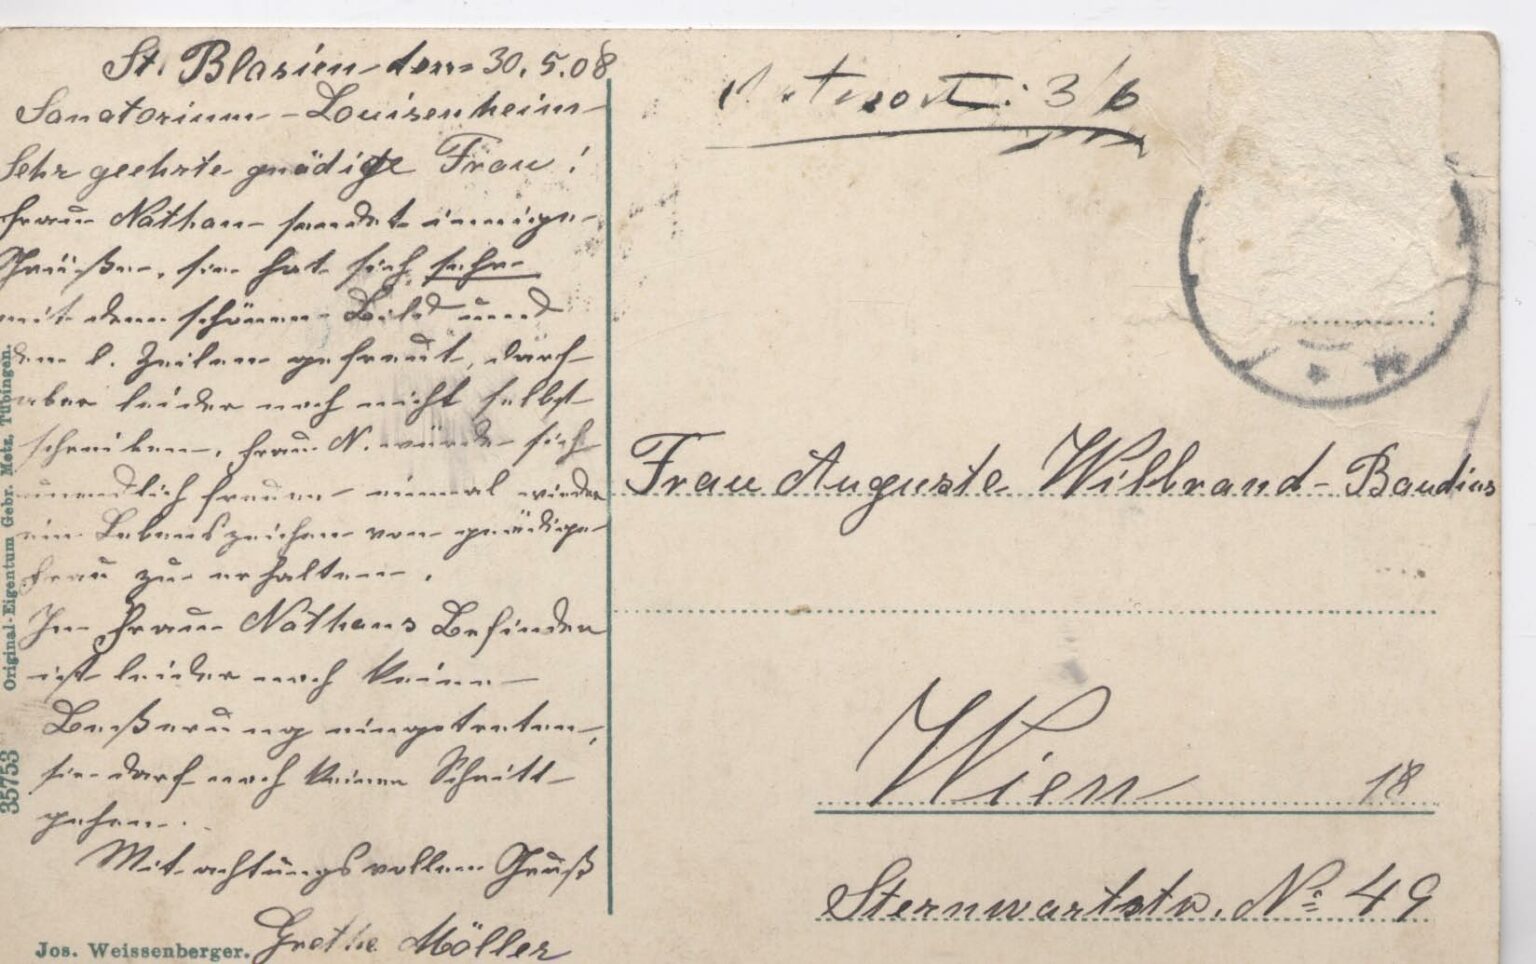 St. Blasien den 30.5.08
Sanatorium - Louisenheim
Sehr geehrte gnädige Frau!
Frau Nathan sendet innige
Grüße, sie hat sich sehr
mit dem schönen Bild und
den l. Zeilen gefreut, darf
aber leider noch nicht selbst
schreiben. Frau N. würde sich
unendlich freuen einmal wieder
ein Lebenszeichen von gnädige
Frau zu erhalten.
In Frau Nathans Befinden
ist leider noch keine
Beßerung eingetreten,
sie darf noch keinen Schritt
gehen.
Mit achtungsvollem Gruß
Grethe Möller
Jos. Weissenberger.
35753
Original-Eigentum Gebr. Metz, Tübingen.
3/6
Frau Auguste Wilbrand-Baudius
Wien 18
Sternwartstr. No 49